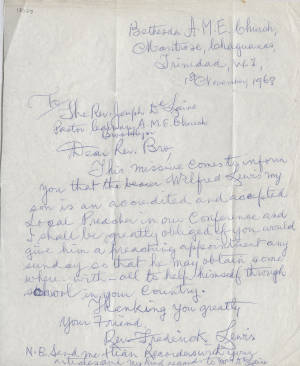 Bethesda A.M.E. Church,
Montrose, Chaguanas,
Trinidad, W.I.
1st November 1968
To
The Rev. Joseph De Laine
Pastor A.M.E. Church
Brooklyn
Dear Rev. Bro,
This missive comes to inform
you that the bearer Wilfred Lewis my
son is an accredited and accepted
Local Preacher in our Conference and
I shall be greatly obliged if you would
give him a preaching appointment any
sunday so that he may obtain some
where-with-all to help himself through
school in your Country.
Thanking you greatly
Your Friend,
Rev. Frederick Lewis
N.B. Send me
and my kind regards to Mrs De Laine